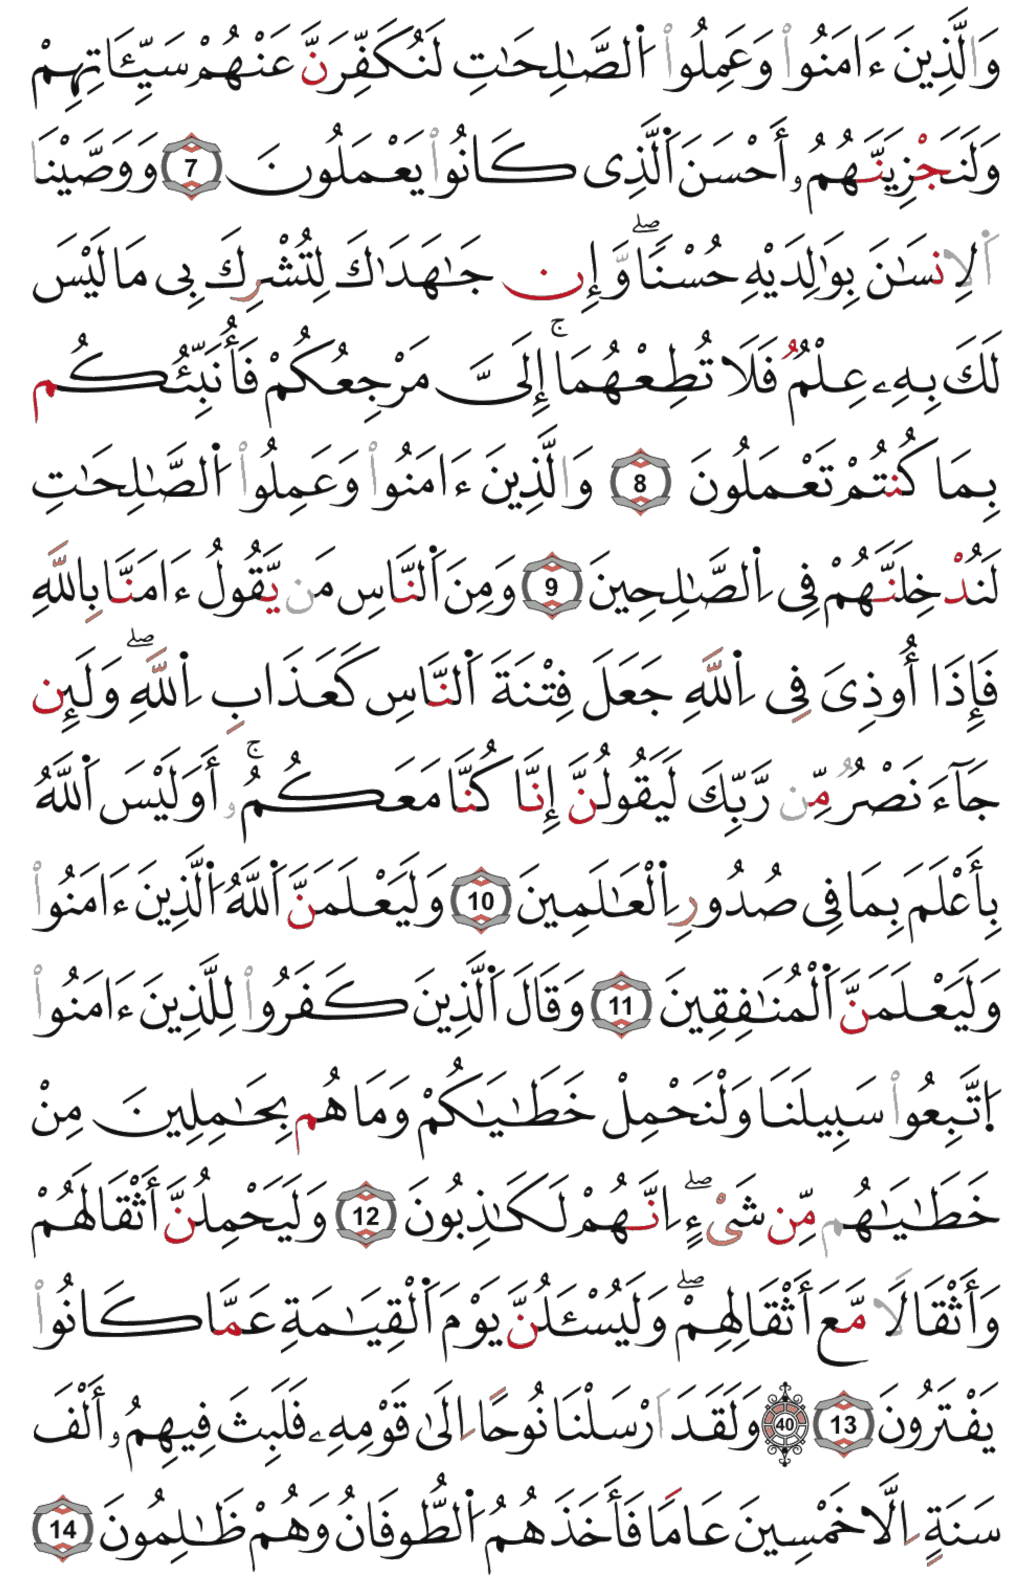 وَالَّذِينَ ءَامَنُواْ وَعَمِلُواْ اُ۬لصَّٰلِحَٰتِ لَنُكَفِّرَنَّ عَنْهُمْ سَيِّـَٔاتِهِمْ
وَلَنَجْزِيَنَّهُمُۥٓ أَحْسَنَ اَ۬لَّذِى كَانُواْ يَعْمَلُونَ 7 وَوَصَّيْنَا
اَ۬لِانسَٰنَ بِوَٰلِدَيْهِ حُسْنٗاۖ وَإِن جَٰهَدَٰكَ لِتُشْرِكَ بِى مَا لَيْسَ
لَكَ بِهِۦ عِلْمٞ فَلَا تُطِعْهُمَاۚ إِلَىَّ مَرْجِعُكُمْ فَأُنَبِّئُكُم
بِمَا كُنتُمْ تَعْمَلُونَ 8 وَالَّذِينَ ءَامَنُواْ وَعَمِلُواْ اُ۬لصَّٰلِحَٰتِ
لَنُدْخِلَنَّهُمْ فِى اِ۬لصَّٰلِحِينَ 9 وَمِنَ اَ۬لنَّاسِ مَن يَّقُولُ ءَامَنَّا بِاللَّهِ
فَإِذَا أُوذِىَ فِى اِ۬للَّهِ جَعَلَ فِتْنَةَ اَ۬لنَّاسِ كَعَذَابِ اِ۬للَّهِۖ وَلَئِن
جَآءَ نَصْرٞ مِّن رَّبِّكَ لَيَقُولُنَّ إِنَّا كُنَّا مَعَكُمُۥٓۚ أَوَلَيْسَ اَ۬للَّهُ
بِأَعْلَمَ بِمَا فِى صُدُورِ اِ۬لْعَٰلَمِينَ 10 وَلَيَعْلَمَنَّ اَ۬للَّهُ اُ۬لَّذِينَ ءَامَنُواْ
وَلَيَعْلَمَنَّ اَ۬لْمُنَٰفِقِينَ 11 وَقَالَ اَ۬لَّذِينَ كَفَرُواْ لِلَّذِينَ ءَامَنُواْ
اُ۪تَّبِعُواْ سَبِيلَنَا وَلْنَحْمِلْ خَطَٰيَٰكُمْ وَمَا هُم بِحَٰمِلِينَ مِنْ
خَطَٰيَٰهُم مِّن شَىْءٍۖ اِنَّهُمْ لَكَٰذِبُونَ 12 وَلَيَحْمِلُنَّ أَثْقَالَهُمْ
وَأَثْقَالٗا مَّعَ أَثْقَالِهِمْۖ وَلَيُسْـَٔلُنَّ يَوْمَ اَ۬لْقِيَٰمَةِ عَمَّا كَانُواْ
يَفْتَرُونَ 13 40 وَلَقَدَ اَرْسَلْنَا نُوحًا اِلَىٰ قَوْمِهِۦ فَلَبِثَ فِيهِمُۥٓ أَلْفَ
سَنَةٍ اِلَّا خَمْسِينَ عَامٗا فَأَخَذَهُمُ اُ۬لطُّوفَانُ وَهُمْ ظَٰلِمُونَ 14